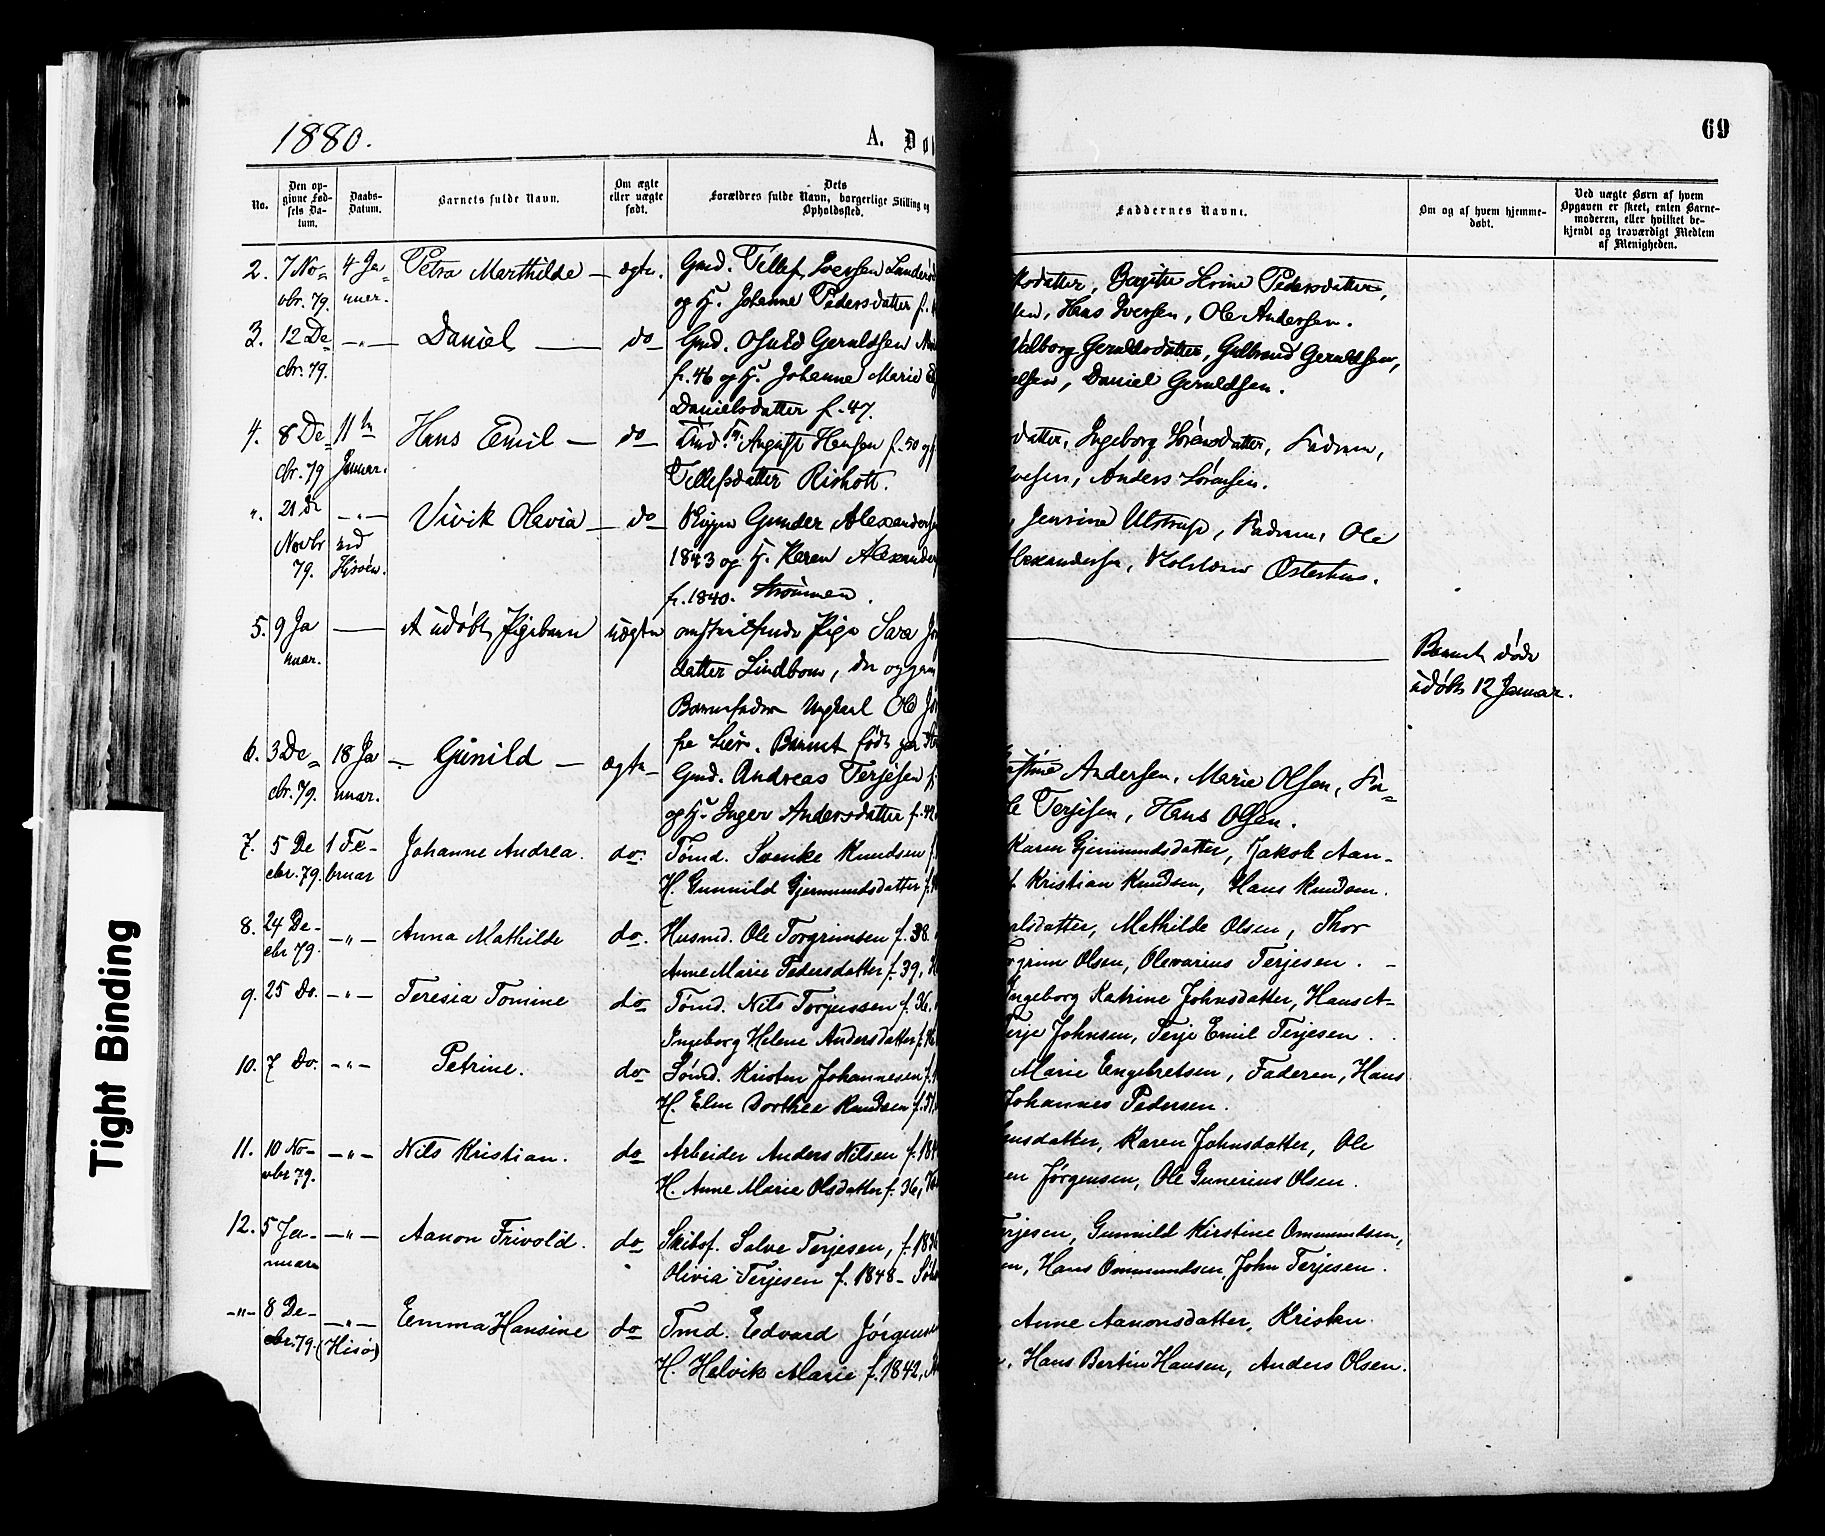 1880.
A. Dø
69
No.
Den op-
givne Fød-
sels Da-
tum.
Daabs-
Datum.
Barnets fulde Navn.
Om ægte
eller uægte
født.
Dets
Forældres fulde Navn, borgerlige Stilling og
Opholdssted.
Faddernes Navne.
Om og af hvem hjemme-
døbt.
Ved uægte Børn af hvem
Opgaven er skeet, enten Barne-
moderen, eller hvilket be-
kjendt og troværdigt Medlem
af Menigheden.
2. 7 No- 4 Ja- Petra Marthilde — ægte. Gmd. Tellef Iversen
vbr. 79. nuar. og H. Johanne Pedersdatter f.
datter, Pedersdatter,
Hans Iversen, Ole Andersen.
3. 12 De- —„— Daniel — do Gmd. Osuld Geruldsen
cbr. 79. f. 46 og H. Johanne Marie
Danielsdatter f. 47.
Valborg Geruldsdatter, Gulbrand Geruldsen,
Daniel Geruldsen.
4. 8 De- 11te Hans Emil — do August Hansen f. 50 og
cbr. 79 Januar. Tellefsdatter
datter, Ingeborg Sørensdatter, Fadren,
Anders Sørensen.
„. 21 De —„— Vivik Olavia — do Gunder Alexanders
Novbr ved 1843 og H. Karen Alexander
79. Hisøen. f. 1840. Strømmen.
Jensine Ulstrup, Fadren, Ole
Alexandersen, Osterhus.
5. 9 Ja — Et udøbt Pigebarn uægte omstreifende Pige Sara
nuar. datter Lindbom, der opgav
Barnefader Ungkarl Ole
fra Lier. Barnet født paa
Barnet døde
udøbt 12 Januar.
6. 3 De- 18 Ja — Gunild — ægte Gmd. Andreas Terjesen f.
cbr. 79. nuar. og H. Inger Andersdatter f. 42
Andersen, Marie Olsen, Fa-
Terjesen, Hans Olsen.
7. 5 De 1 Fe- Johanne Andrea. do. Tømd. Sveinke Knudsen f.
cbr. 79. bruar H. Gunnild Gjermundsdatter f.
Karen Gjermundsdatter, Jakob Aan-
Kristian Knudsen, Hans Knudsen.
8. 24 De- —„— Anna Mathilde do. Husmd. Ole Torgrimsen f. 38.
cbr 79. Anne Marie Pedersdatter f. 39,
datter, Mathilde Olsen, Thor
Olsen, Olevarius Terjesen. —
9. 25 Do. —„— Teresia Tomine do Tømd. Nils Torjussen f. 36.
Ingeborg Helene Andersdatter f.
Ingeborg Katrine Johnsdatter, Hans A-
Terje Johnsen, Terje Emil Terjesen.
10. 7 Do. —„— Petrine. do Sømd. Kristen Johannesen f.
H. Elen Dorthea Knudsen f.
Marie Engebretsen, Faderen, Hans
Johannes Pedersen.
11. 10 No- —„— Nils Kristian. do Arbeider Anders Nilsen f. 184
vbr 79. H. Anne Marie Olsdatter f. 36,
datter, Karen Johnsdatter, Ole
Jørgensen, Ole Gunerius Olsen.
12. 5 Ja- —„— Aanon Frivold. do Skibsf. Salve Terjesen, f. 1836
nuar Olivia Terjesen f. 1848 -
Terjesen, Gunnild Kirstine Ommundsen,
Hans Ommundsen, John Terjesen.
—„— 8 De- —„— Emma Hansine do Tmd. Edvard Jørgensen
cbr. 79. (Hisø) H. Helvik Marie f. 1842,
Anne Aanonsdatter, Kristen
Hans Bertin Hansen, Anders Olsen.
Tight Binding